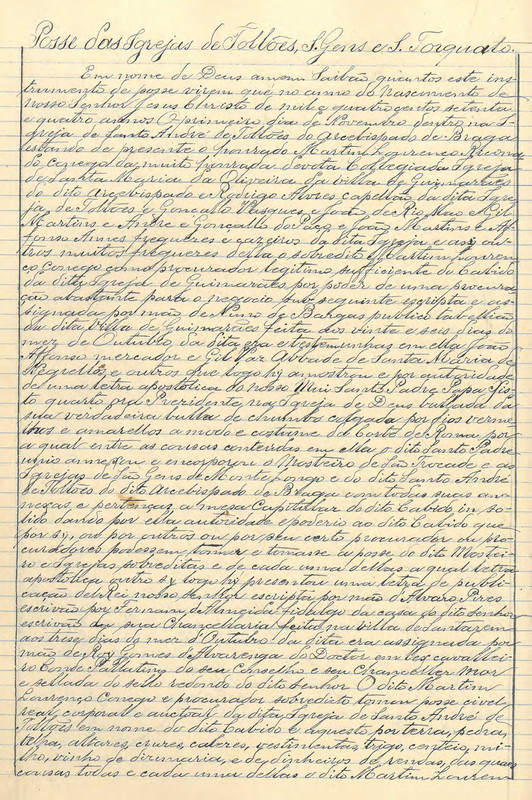 Posse das Igrejas de Tolões, S. Gens e S. Torquato.
Em nome de Deus amem Saibão quantos este ins-
trumento de posse virem que no anno do Nascimento de
Nosso Senhor Jesus Christo de mil e quatro centos setenta
e quatro annos O primeiro dia de Novembro dentro na I-
greja de Santo André de Tolões do Arcebispado de Braga
estando de presente o honrado Martim Lourenço
conego da muito honrada e devota Collegiada Igreja
de Santa Maria da Oliveira da villa de Guimarães
do dito Arcebispado e Rodrigo Alvres capellão da dita Igre-
ja de Tolões e Gonçallo Vasques e João de Rio Mao e Gil
Martins e André e Gonçallo do Paço e João Martins e Af-
fonso Annes fregueres e cazeiros da dita Igreja e assy ou-
tros muitos fregueres della o sobredito Martim Louren-
ço Conego como procurador legitimo sufficiente do Cabido
da dita Igreja de Guimarães por poder de uma procura-
ção abastante para o negocio subsequinte escripta e as-
signada por mão de Nuno de Bargas publico tabellião
da dita Villa de Guimarães feita aos vinte e seis dias do
mez de Outubro da dita era e testemunhas em ella João
Affonso mercador e Gil Vaz Abbade de Santa Maria de
Negrellos e outros que logo hy amostrou e por autoridade
de uma letra apostolica do nosso Mui Santo Padre Papa Sis-
to quarto ora Prezidente na Igreja de Deus bullada da
sua verdadeira bulla de chumbo colgada por fios verme-
lhos e amarellos a modo e costume da Corte de Roma por
a qual entre as cousas contheudas em ella o dito Santo Padre
unio annexou e encorporou o Mosteiro de São Torcade e as
Igrejas de São Gens de Monte Longo e do dito Santo André
de Tolões do dito Arcebispado de Braga com todas suas an-
nexas e pertenças a meza Capitullar do dito Cabido in so-
lido dando por ella autoridade e poderio ao dito Cabido que
por sy, ou por outros ou por seu certo procurador ou pro-
curadores podessem tomar e tomasse a posse do dito Mostei-
ro e Igrejas sobreditas e de cada uma dellas a qual letra
apostolica outro sy logo hy presentou uma letra de publi-
cação del Rei nosso Senhor escripta por mão d'Alvaro Pires
escrivão por Fernam de Almeida fidalgo da casa do dito Senhor
escrivão da sua Chancellaria feita na villa de Santarem
aos tres dias do mez d'Outubro da dita era assignada por
mão de Ruy Gomes de Alvarenga do Doctor em leis cavallei-
ro Conde Pallatim do seu Conselho e seu Chanceller Mor
e sellada do sello redondo do dito Senhor O dito Martim
Lourenço Conego e procurador sobredito tomou posse civel
real, corporal e auctoar da dita Igreja de Santo André de
Tolões em nome do dito Cabido e aquesto por terra, pedra,
telha, alhares, cruzes, caleres, vestimentas, trigo, centeio, mi-
lho, vinho de dizimaria, e de dinheiros de rendas, das quaes
cousas todas e cada uma dellas o dito Martim Louren-